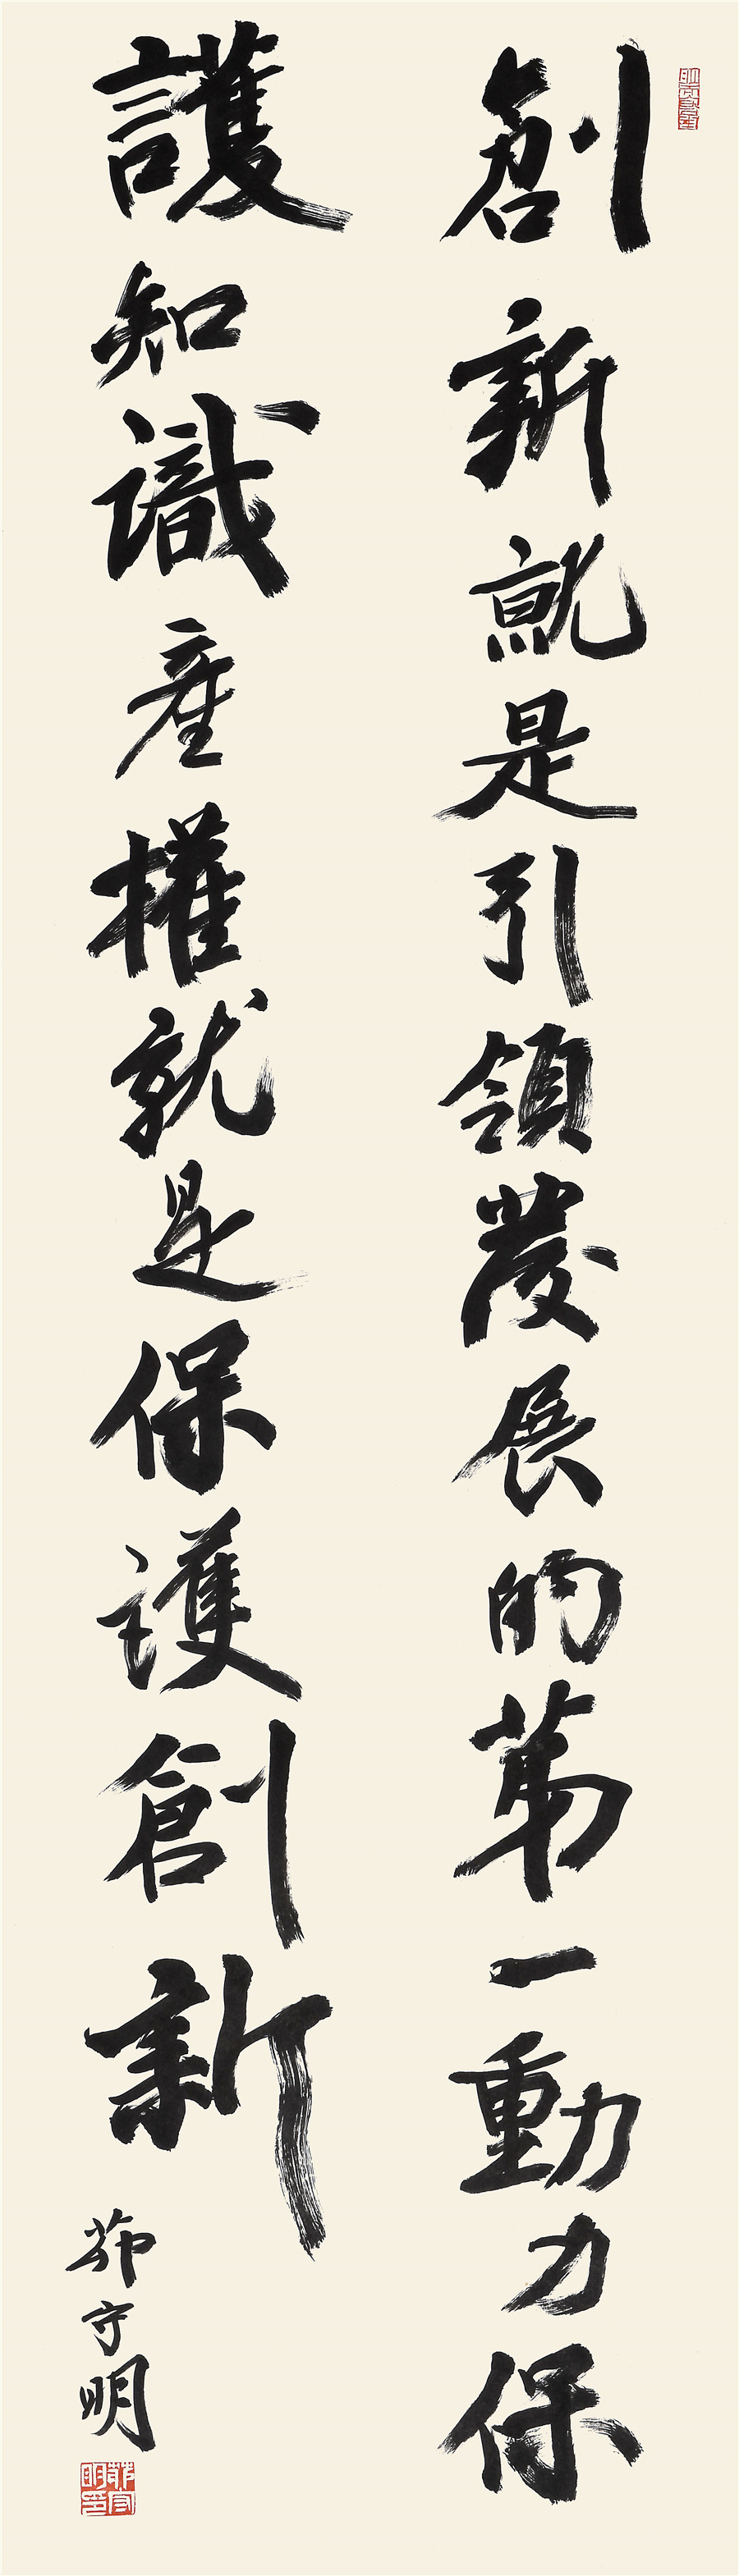 創新就是引領發展的第一動力保
護知識產權就是保護創新
守明